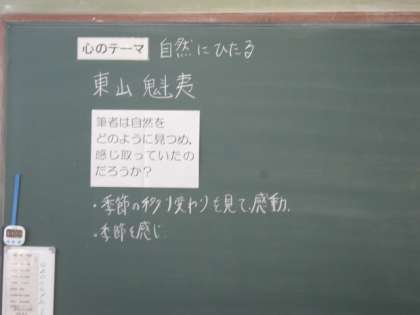 心のテーマ 自然にひたる
東山魁夷
筆者は自然を
どのように見つめ、
感じ取っていたの
だろうか？
・季節の移り変わりを見て、感動。
・季節を感じ